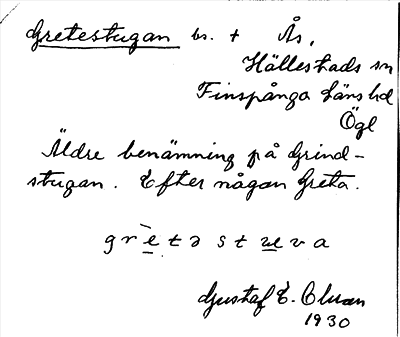 Gretestugan bs. + Ås,
Hällestads sn
Finspånga läns hd
Ögl
Äldre benämning på Grind-
stugan. Efter någon Greta.
Gustaf E.
1930